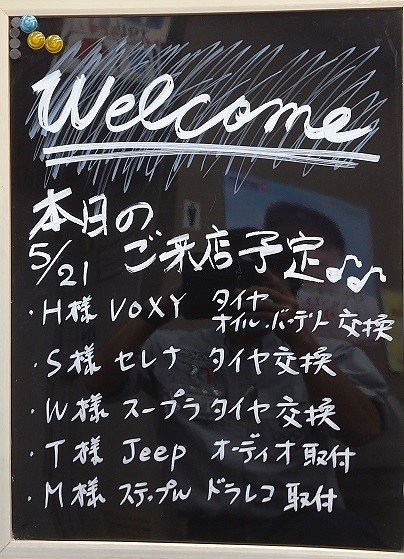 Welcome
本日の
5/21 ご来店予定♪♪
・H様 VOXY タイヤ
オイル・バッテリー交換
・S様 セレナ タイヤ交換
・W様 スープラ タイヤ交換
・T様 Jeep オーディオ取付
・M様 ステップW ドラレコ取付